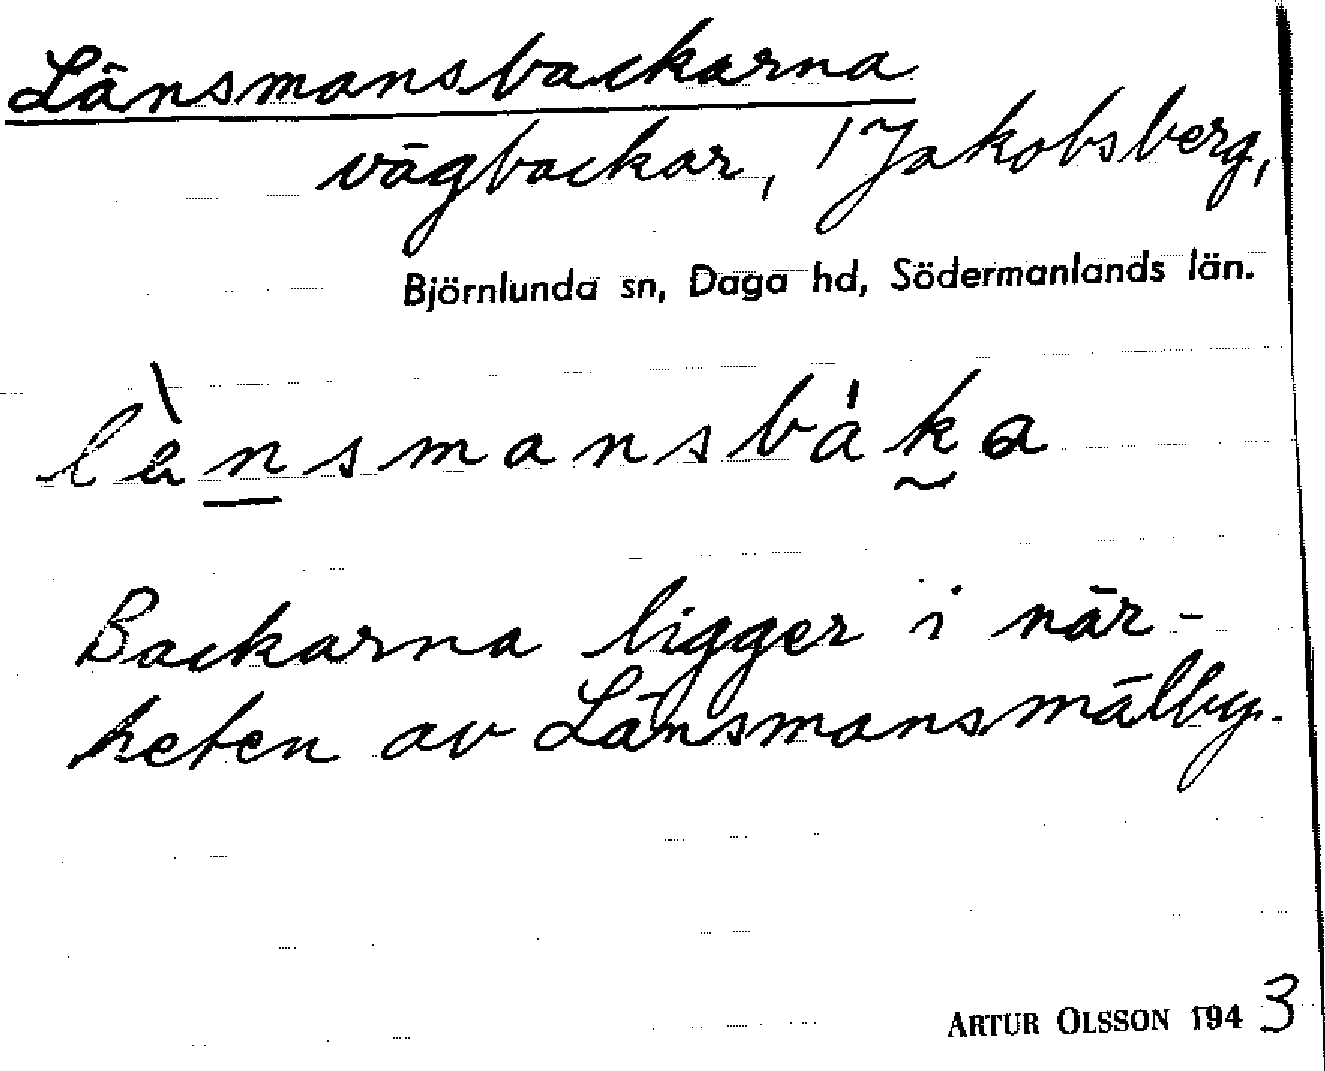 Länsmansbackarna
vägbackar, 1 Jakobsberg,
Björnlunda sn, Daga hd, Södermanlands län.
lὲnsmansbáka
Backarna ligger i när-
heten av Länsmansmälby.
ARTUR OLSSON 1943